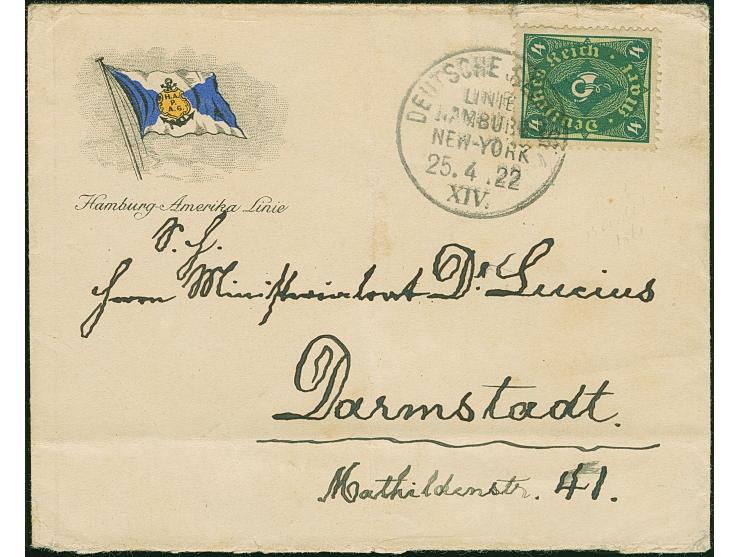 H.A.
P.
A.G.
Hamburg-Amerika Linie
DEUTSCHE
LINIE
HAMBURG
NEW-YORK
25.4.22
XIV.
Deutsches Reich
4 Mark 4
4 4
S. H.
Herrn Ministerialrat Dr. Lucius
Darmstadt.
Mathildenstr. 41.